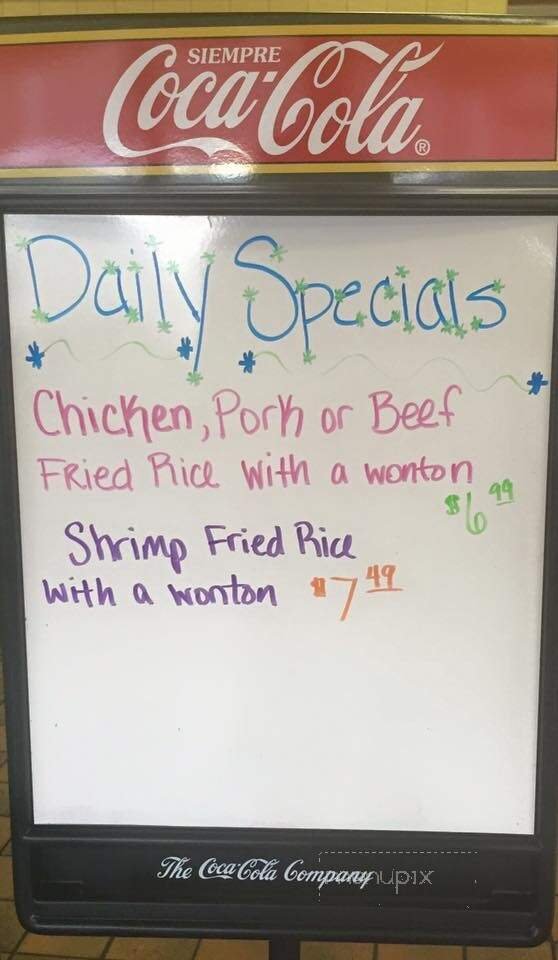 SIEMPRE
Coca-Cola®
Daily Specials
Chicken, Pork or Beef
Fried Rice with a wonton
$6.99
Shrimp Fried Rice
with a wonton $7.49
The Coca-Cola Company